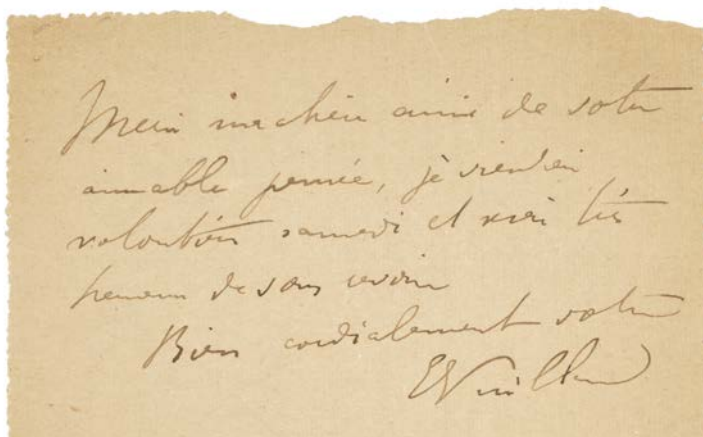 Merci ma chère amie de votre
aimable pensée, je viendrai
volontiers samedi et serai très
heureux de vous revoir
Bien cordialement votre
EVuillard